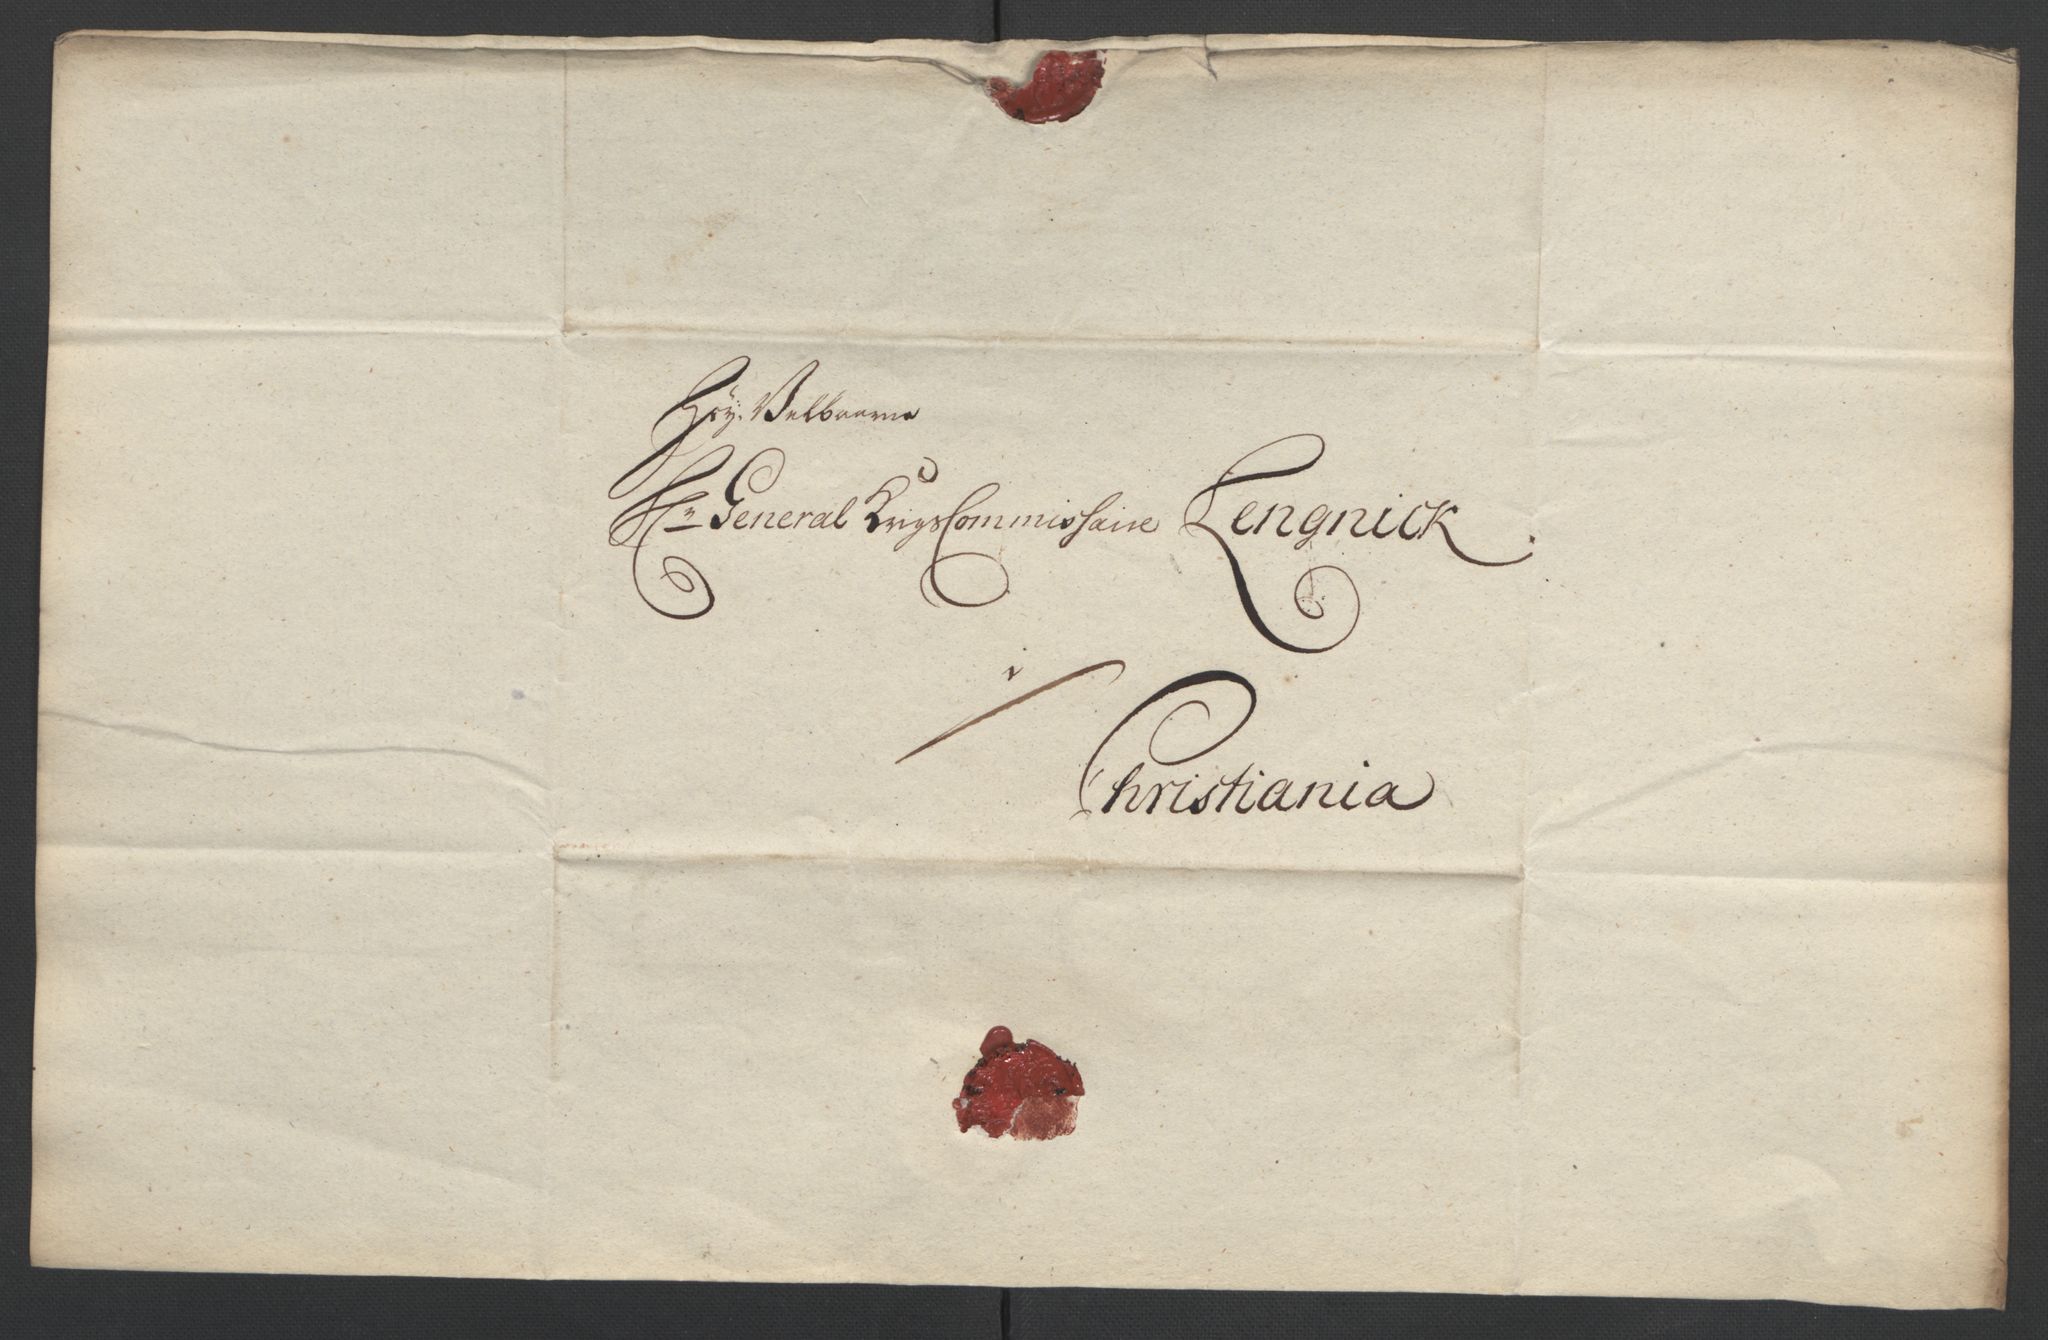 Høy Velbaarne
Hr General KrigsCommissaire Lengnick.
i
Christiania